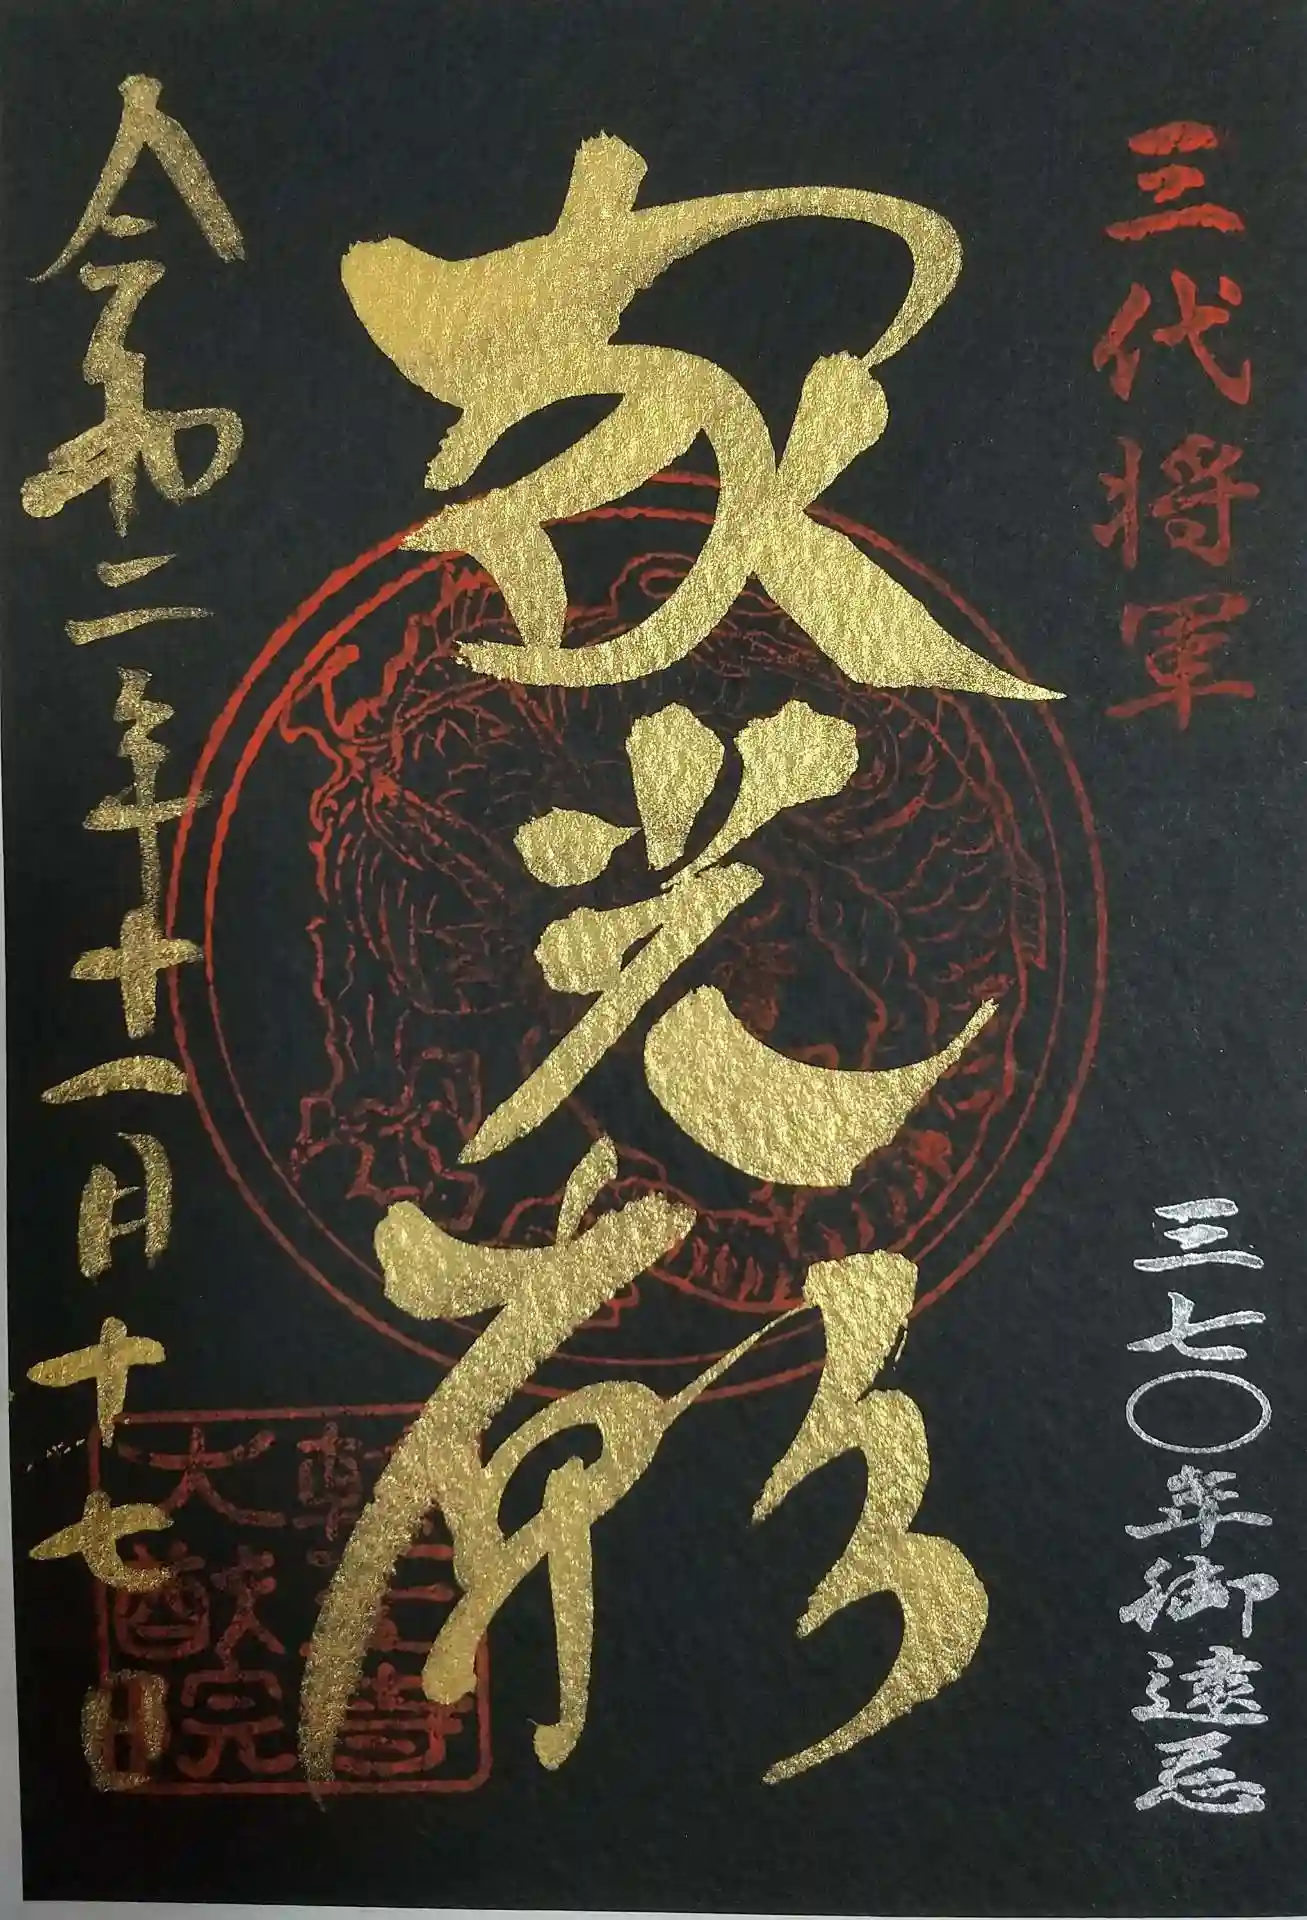 三代将軍
三七〇年御遠忌
家光
令和二年十一月十七日
輪王寺
大猷院